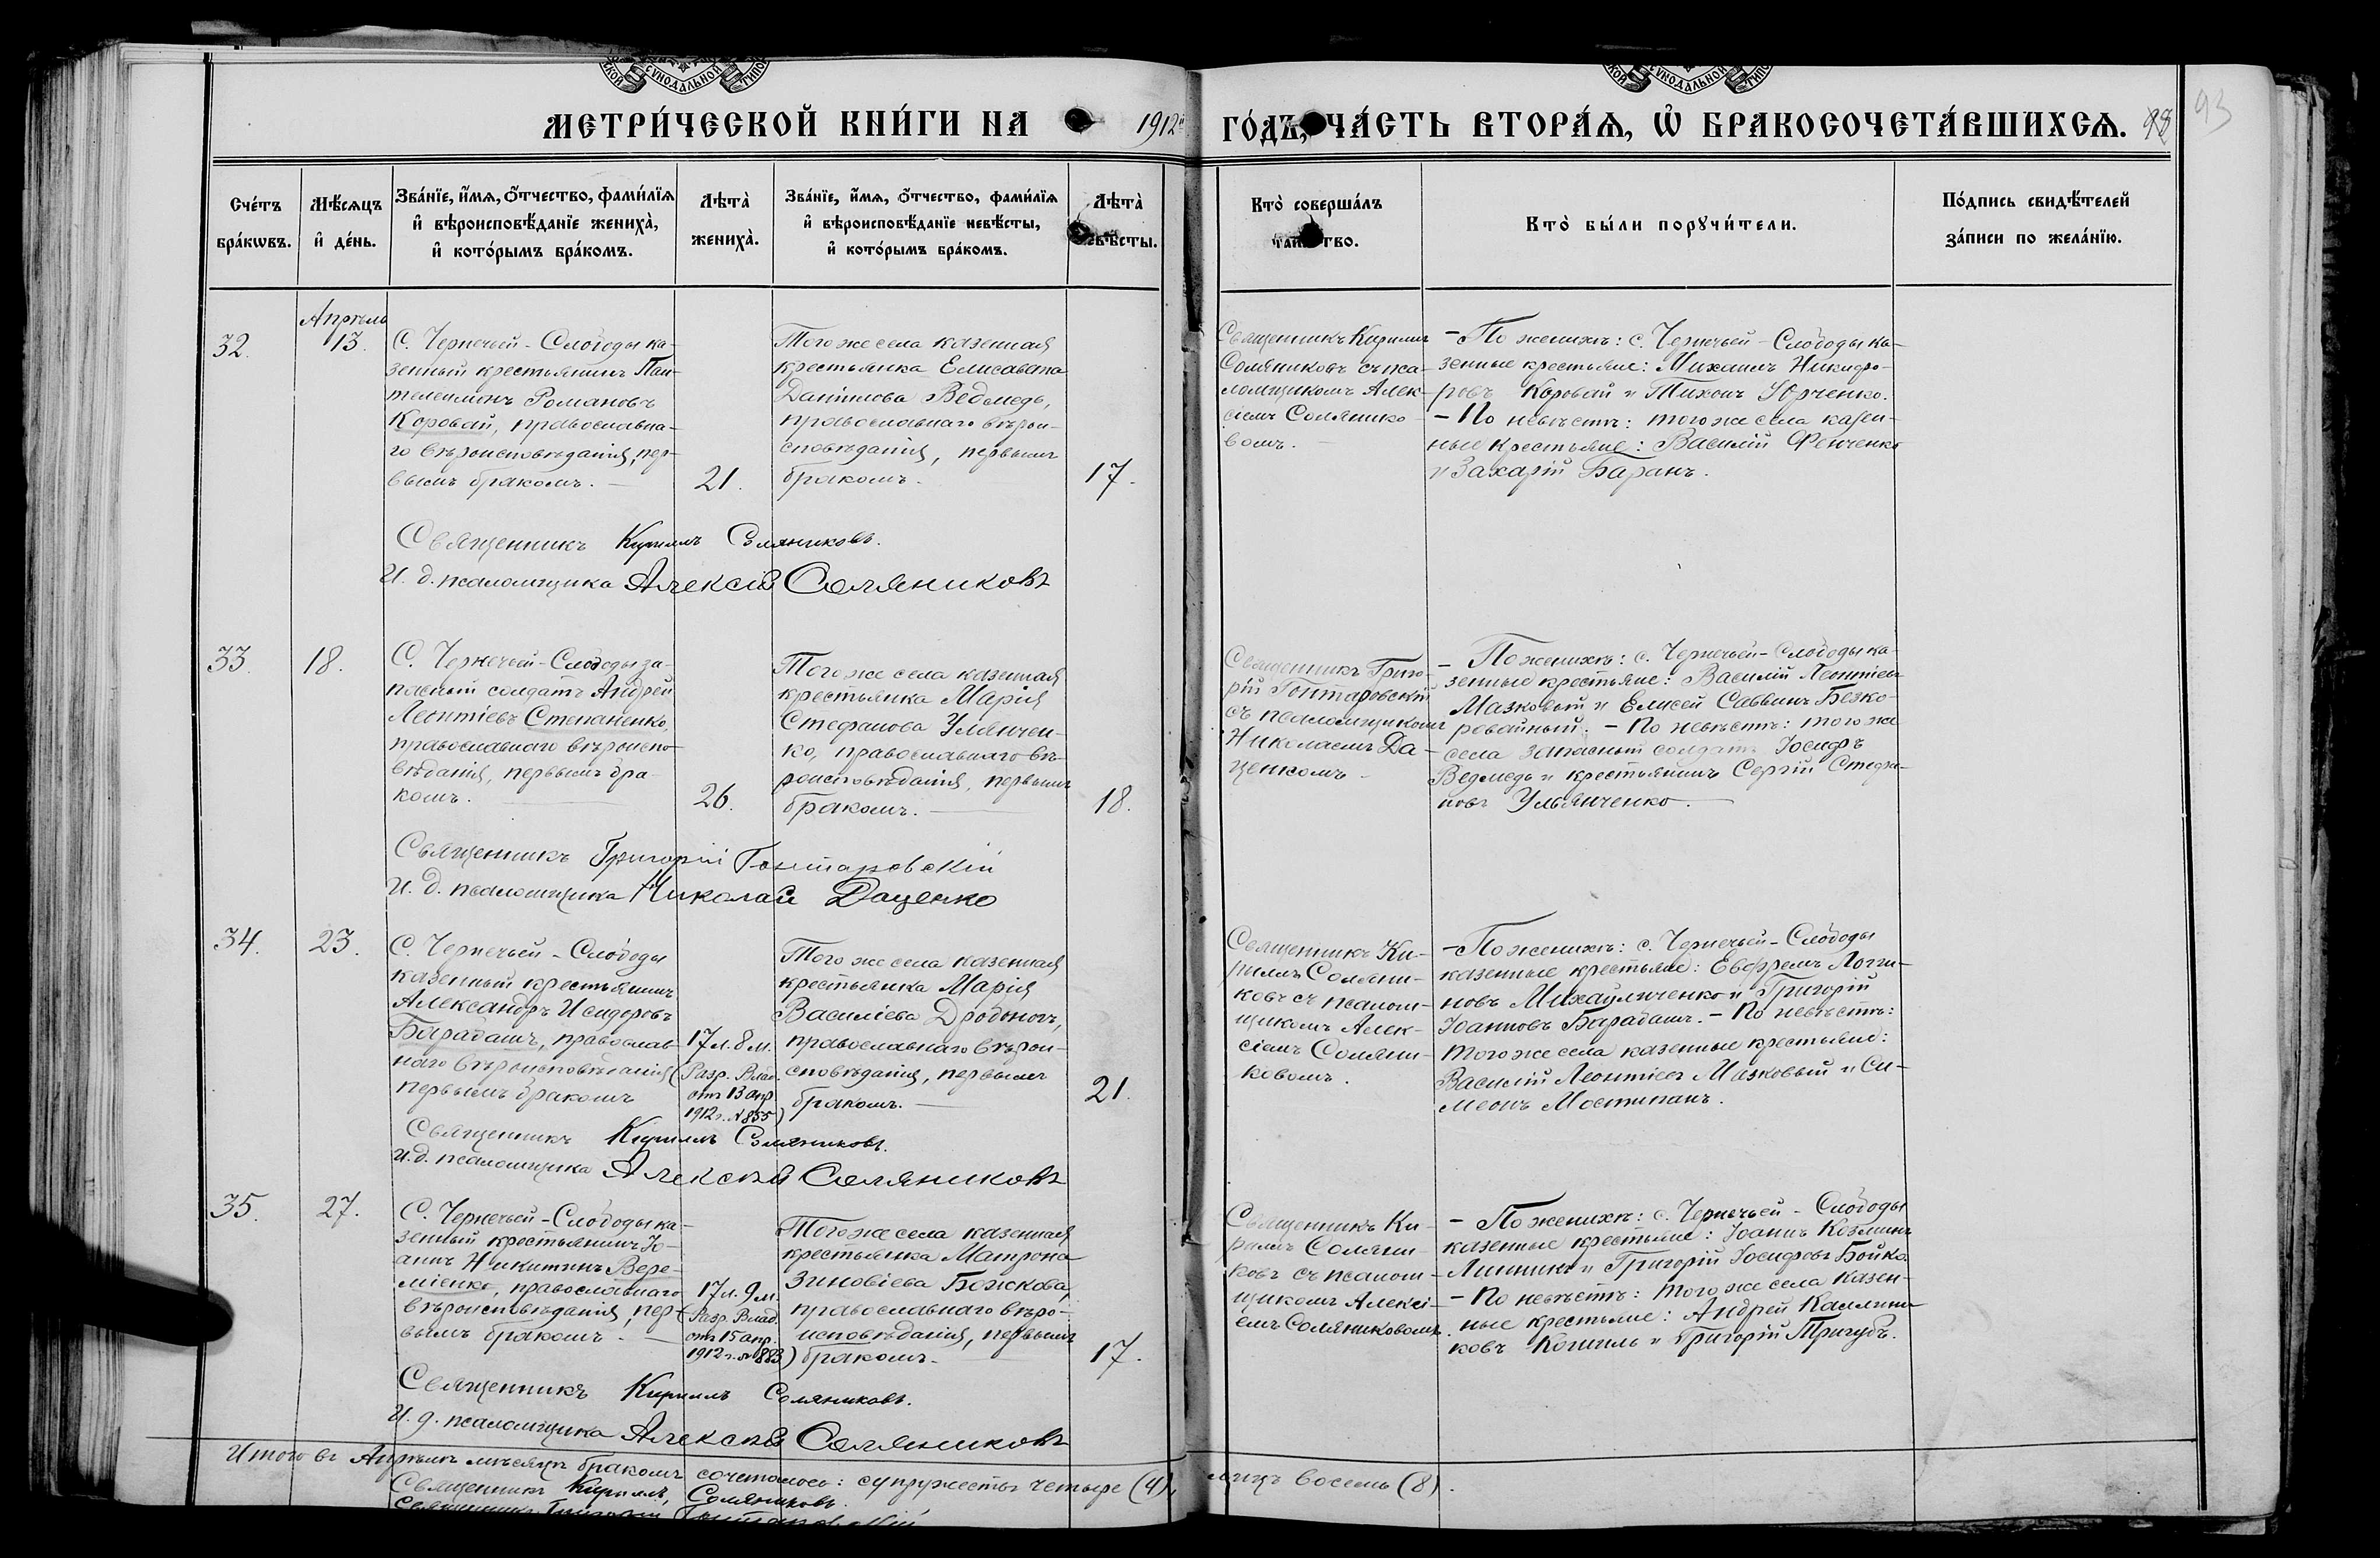 СѴНОДАЛЬНОЙ
СѴНОДАЛЬНОЙ
МЕТРИ́ЧЕСКОЙ КНИ́ГИ НА 1912 ГО́ДЪ, ЧА́СТЬ ВТОРА́Ѧ, Ѡ҆ БРАКОСОЧЕТА́ВШИХСѦ.
93
Сче́тъ
бра́кѡвъ.
Мѣ́сяцъ
и҆ де́нь.
Зва́нїе, и҆́мя, о҆́тчество, фами́лїя
и҆ вѣроисповѣ́данїе жениха̀,
и҆ кото́рымъ бра́комъ.
Лѣта̀
жениха̀.
Зва́нїе, и҆́мя, о҆́тчество, фами́лїя
и҆ вѣроисповѣ́данїе невѣ́сты,
и҆ кото́рымъ бра́комъ.
Лѣта̀
невѣ́сты.
Кто̀ соверша́лъ
та́инство.
Кто̀ бы́ли порꙋчи́тели.
По́дпись свидѣ́телей
за́писи по жела́нїю.
32.
Апрѣль
13.
С. Чернечьей-Слободы ка-
зенный крестьянинъ Пан-
телеимонъ Романовъ
Коровай, православна-
го вѣроисповѣданія, пер-
вымъ бракомъ.
21.
Того же села казенная
крестьянка Елисавета
Даніилова Ведмедь,
православнаго вѣрои-
сповѣданія, первымъ
бракомъ.
17.
Священникъ Кириллъ
Соляниковъ съ пса-
ломщикомъ Алек-
сіемъ Солянико-
вомъ.
– По женихѣ: с. Чернечьей-Слободы ка-
зенные крестьяне: Михаилъ Никифо-
ровъ Коровай и Тихонъ Юрченко.
– По невѣстѣ: того же села казен-
ные крестьяне: Василій Фенченко
и Захарій Баранъ.
Священникъ Кириллъ Соляниковъ.
И. д. псаломщика Алексій Соляниковъ
33.
18.
С. Чернечьей-Слободы за-
пасный солдатъ Андрей
Леонтіевъ Степаненко,
православнаго вѣроиспо-
вѣданія, первымъ бра-
комъ.
26.
Того же села казенная
крестьянка Марія
Стефанова Улянчен-
ко, православнаго вѣ-
роисповѣданія, первымъ
бракомъ.
18.
Священникъ Григо-
рій Гонтаровскій
съ псаломщикомъ
Николаемъ Да-
ценкомъ
– По женихѣ: с. Чернечьей-Слободы ка-
зенные крестьяне: Василій Леонтіевъ
Мазковый и Елисей Саввинъ Безко-
ровайный. – По невѣстѣ: того же
села запасный солдатъ Іосифъ
Ведмедь и крестьянинъ Сергій Стефа-
новъ Ульянченко.
Священникъ Григорій Гонтаровскій
И. д. псаломщика Николай Даценко
34.
23.
С. Чернечьей-Слободы
казенный крестьянинъ
Александръ Исидоровъ
Барабашъ, православ-
наго вѣроисповѣданія,
первымъ бракомъ
17 л. 8 м.
(Разр. Влад.
отъ 13 апр.
1912 г. № 855)
Того же села казенная
крестьянка Марія
Василіева Дробноть,
православнаго вѣрои-
сповѣданія, первымъ
бракомъ.
21.
Священникъ Ки-
риллъ Соляни-
ковъ съ псалом-
щикомъ Алек-
сіемъ Соляни-
ковомъ.
– По женихѣ: с. Чернечьей-Слободы
казенные крестьяне: Евфремъ Логги-
новъ Михайличенко и Григорій
Іоанновъ Барабашъ. – По невѣстѣ:
того же села казенные крестьяне:
Василій Леонтіевъ Мазковый и Си-
меонъ Мостипанъ.
Священникъ Кириллъ Соляниковъ.
И. д. псаломщика Алексѣй Соляниковъ
35.
27.
С. Чернечьей-Слободы ка-
зенный крестьянинъ Іо-
аннъ Никитинъ Вере-
міенко, православнаго
вѣроисповѣданія, пер-
вымъ бракомъ.
17 л. 9 м.
(Разр. Влад.
отъ 15 апр.
1912 г. № 883)
Того же села казенная
крестьянка Матрона
Зиновіева Божкова,
православнаго вѣро-
исповѣданія, первымъ
бракомъ.
17.
Священникъ Ки-
риллъ Соляни-
ковъ съ псалом-
щикомъ Алексі-
емъ Соляниковомъ.
– По женихѣ: с. Чернечьей-Слободы
казенные крестьяне: Іоаннъ Козминъ
Линникъ и Григорій Іосифовъ Бойко.
– По невѣстѣ: того же села казен-
ные крестьяне: Андрей Каллини-
ковъ Кошиль и Григорій Тригубъ.
Священникъ Кириллъ Соляниковъ.
И. д. псаломщика Алексѣй Соляниковъ
Итого въ Апрѣлѣ мѣсяцѣ бракомъ сочеталось: супружествъ четыре (4), лицъ восемь (8).
Священникъ Кириллъ Соляниковъ.
Священникъ Григорій Гонтаровскій